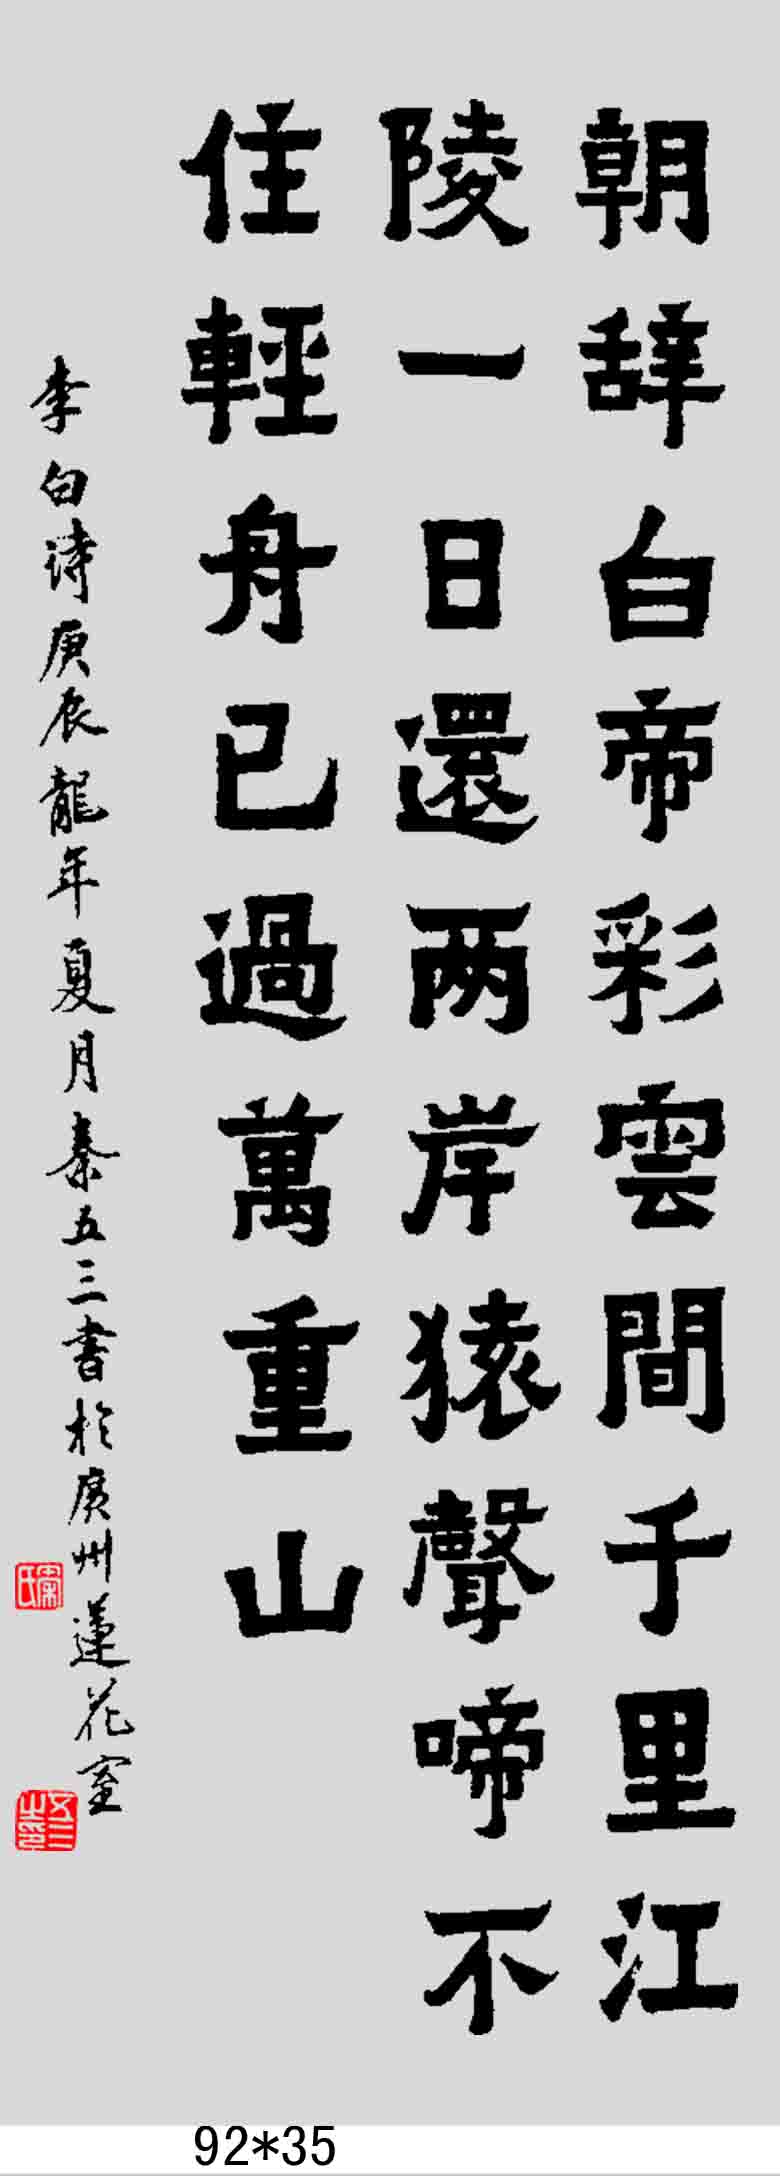 朝辞白帝彩雲間千里江
陵一日還两岸猿聲啼不
住輕舟已過萬重山
李白诗庚辰龍年夏月秦五三書於廣州蓮花室
92*35